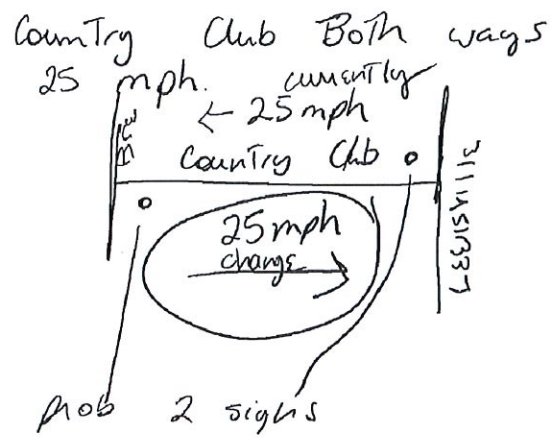 Country Club Both ways
25 mph. currently
← 25 mph
Country Club
25 mph
change
prob 2 signs